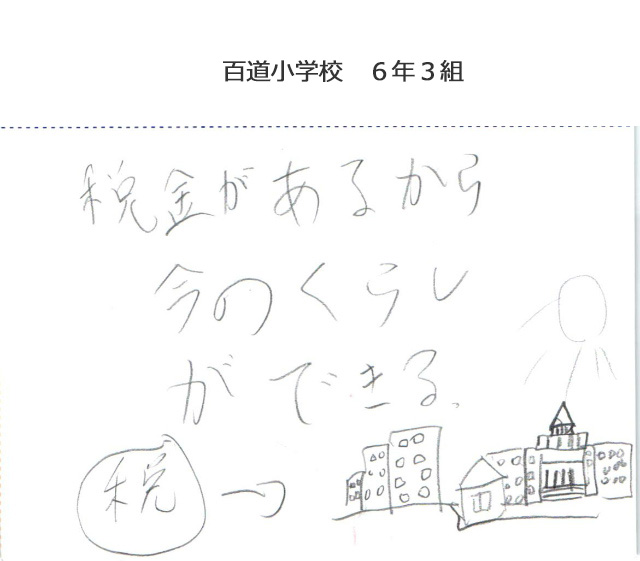 百道小学校　６年３組
税金があるから
今のくらし
ができる.
税